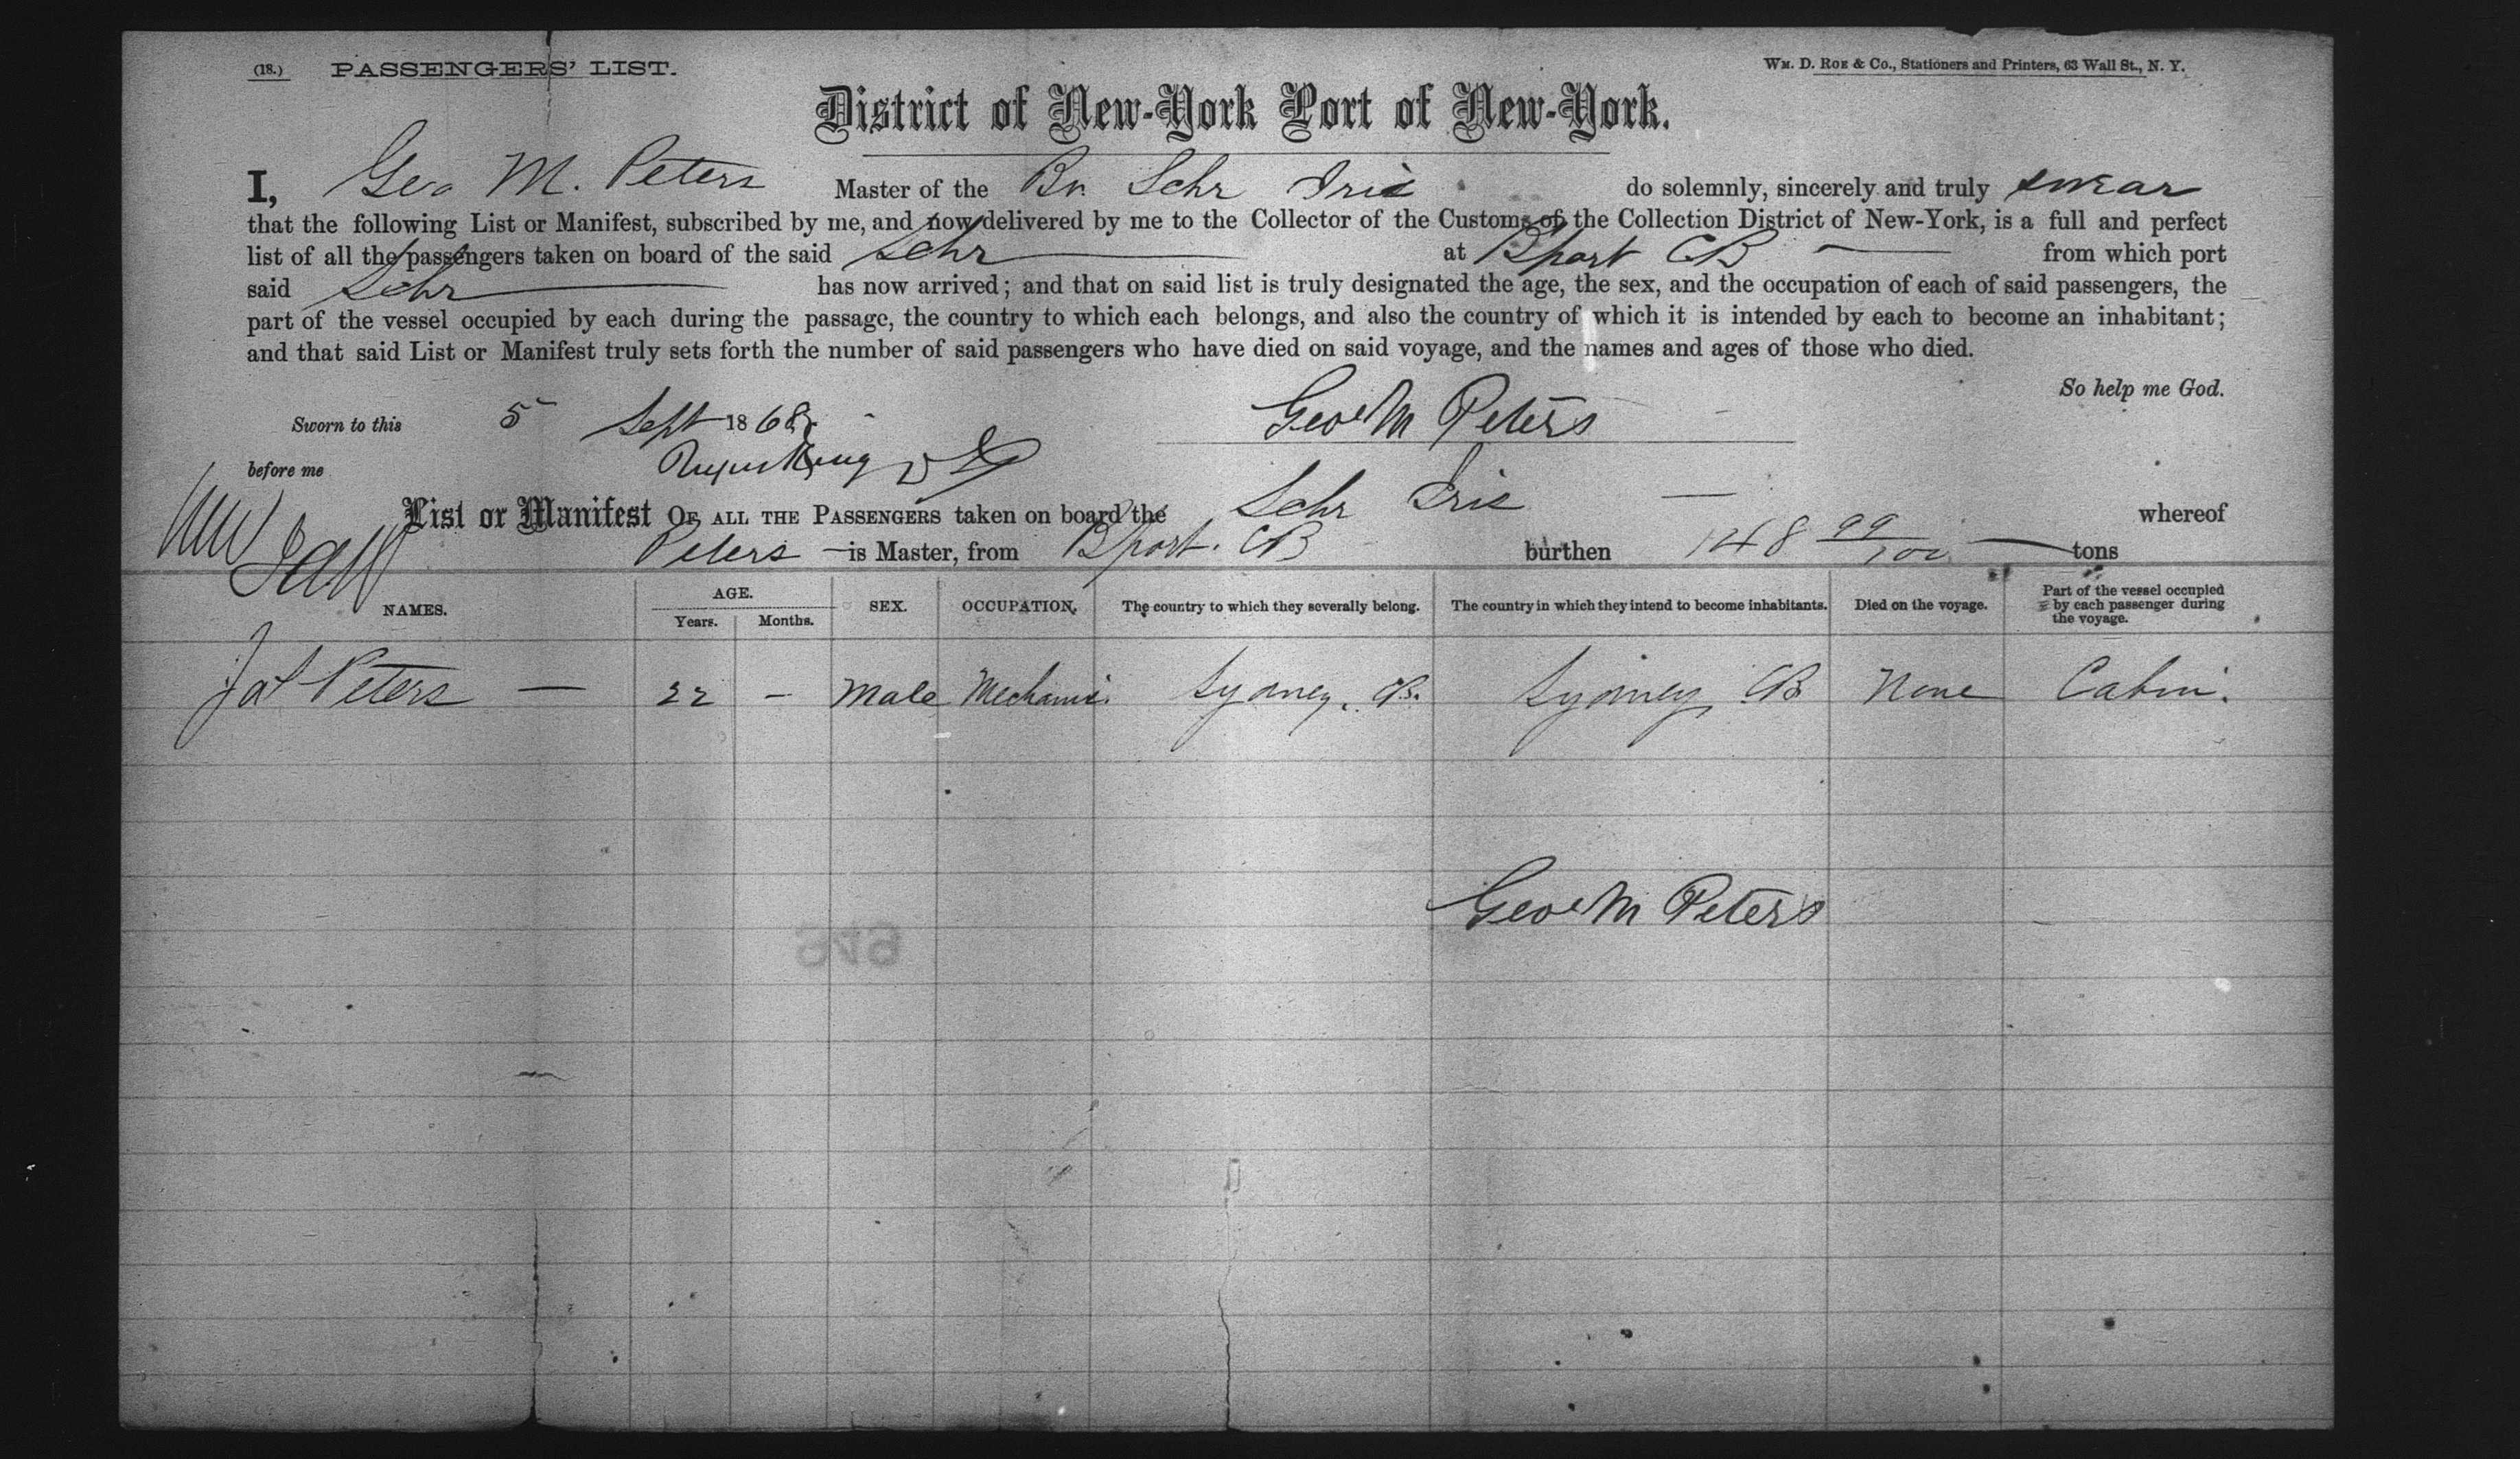 (18.) PASSENGERS' LIST.
Wm. D. Roe & Co., Stationers and Printers, 63 Wall St., N. Y.
District of New-York Port of New-York.
I, Geo M. Peters Master of the Br. Schr Iris do solemnly, sincerely and truly swear
that the following List or Manifest, subscribed by me, and now delivered by me to the Collector of the Customs of the Collection District of New-York, is a full and perfect
list of all the passengers taken on board of the said Schr at Bport CB from which port
said Schr has now arrived; and that on said list is truly designated the age, the sex, and the occupation of each of said passengers, the
part of the vessel occupied by each during the passage, the country to which each belongs, and also the country of which it is intended by each to become an inhabitant;
and that said List or Manifest truly sets forth the number of said passengers who have died on said voyage, and the names and ages of those who died.
So help me God.
Sworn to this 5 Sept 1868 Geo M Peters
before me Rufus King
List or Manifest Of all the Passengers taken on board the Schr Iris whereof
Peters is Master, from Bport. CB burthen 148 99/100 tons
NAMES. AGE. Years. Months. SEX. OCCUPATION. The country to which they severally belong. The country in which they intend to become inhabitants. Died on the voyage. Part of the vessel occupied by each passenger during the voyage.
Peters — 22 – Male Mechanic Sydney, CB. Sydney CB None Cabin.
Geo M Peters